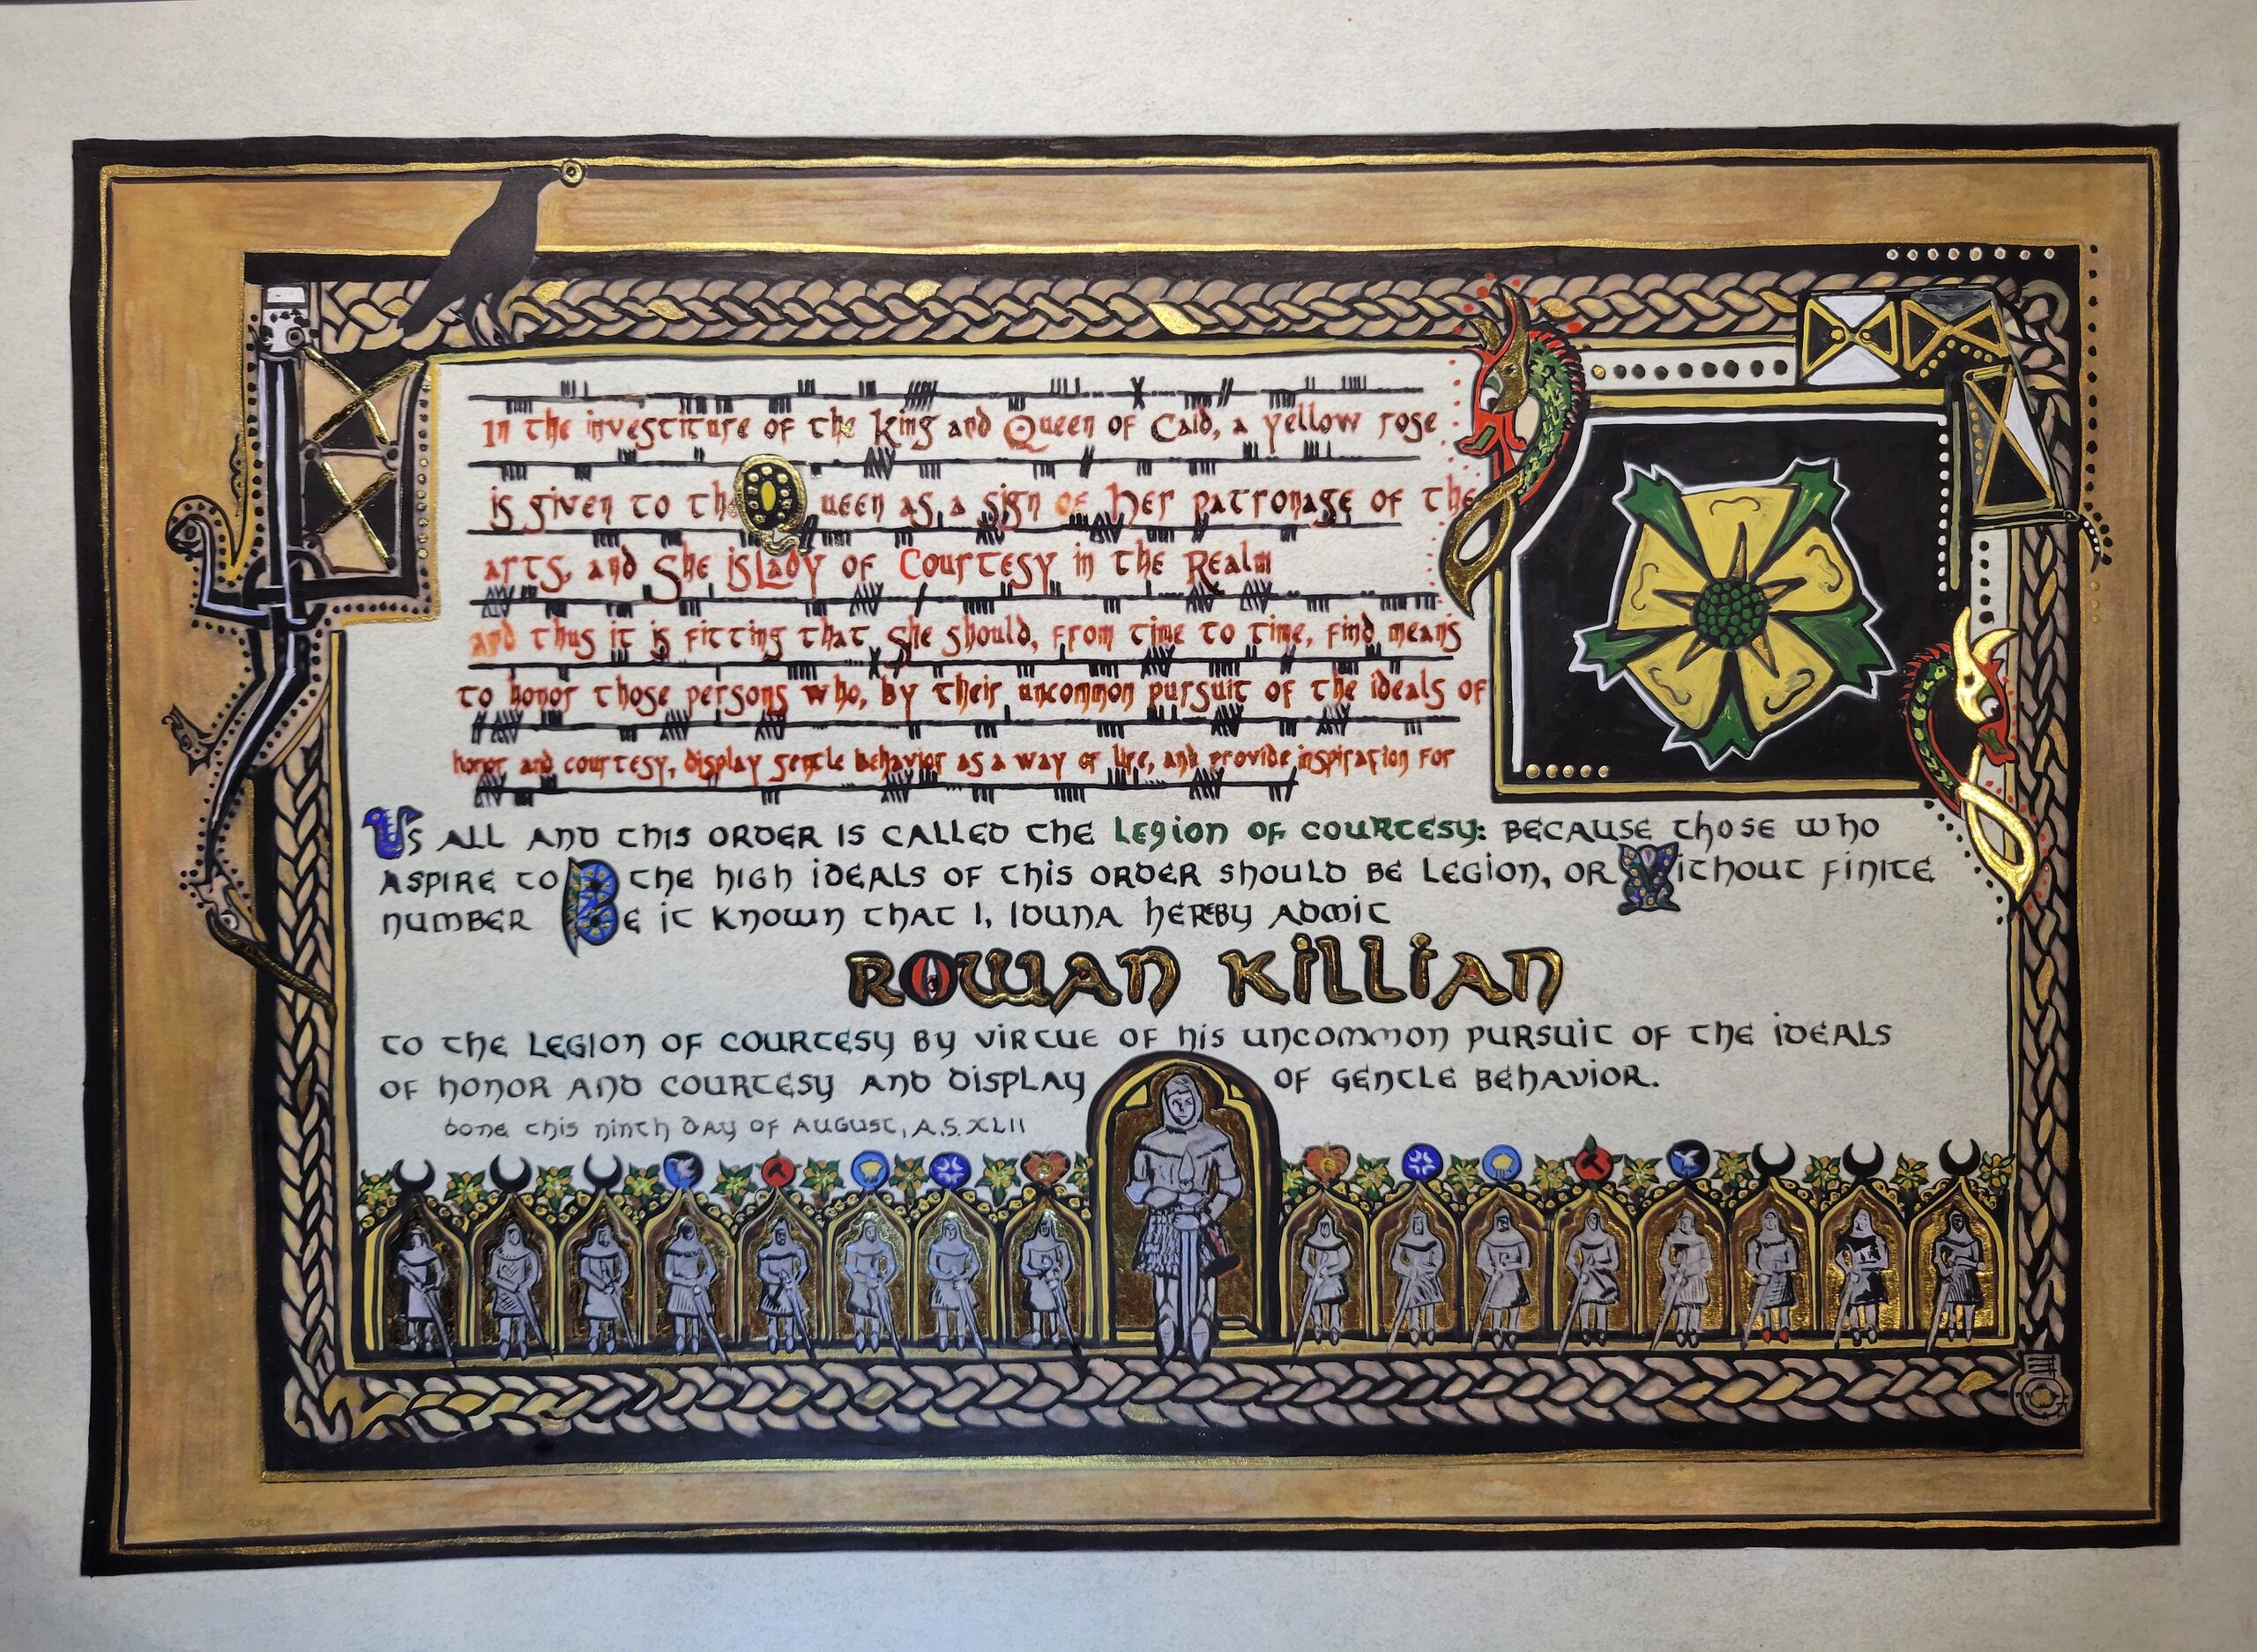 In the investiture of the King and Queen of Caid, a yellow rose
is given to the Queen as a sign of Her patronage of the
arts, and She is Lady of Courtesy in the Realm
and thus it is fitting that She should, from time to time, find means
to honor those persons who, by their uncommon pursuit of the ideals of
honor and courtesy, display gentle behavior as a way of life, and provide inspiration for
Us all and this order is called the Legion of Courtesy: because those who
aspire to the high ideals of this order should be legion, or Without finite
number Be it known that I, Iduna hereby admit
Rowan Killian
to the Legion of Courtesy by virtue of his uncommon pursuit of the ideals
of honor and courtesy and display of gentle behavior.
done this ninth day of August, A.S. XLII